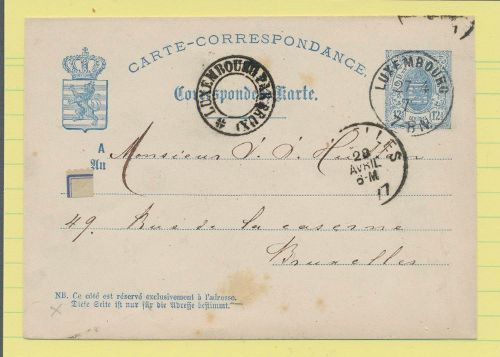 CARTE-CORRESPONDANCE.
Correspondenz-Karte.
LUXEMBOURG
LUXEMBOURG
12
A
An
Monsieur J. J.
LLES
29
AVRIL
6-M
77
49. Rue de la caserne
Bruxelles
NB. Ce côté est réservé exclusivement à l'adresse.
Diese Seite ist nur für die Adresse bestimmt.